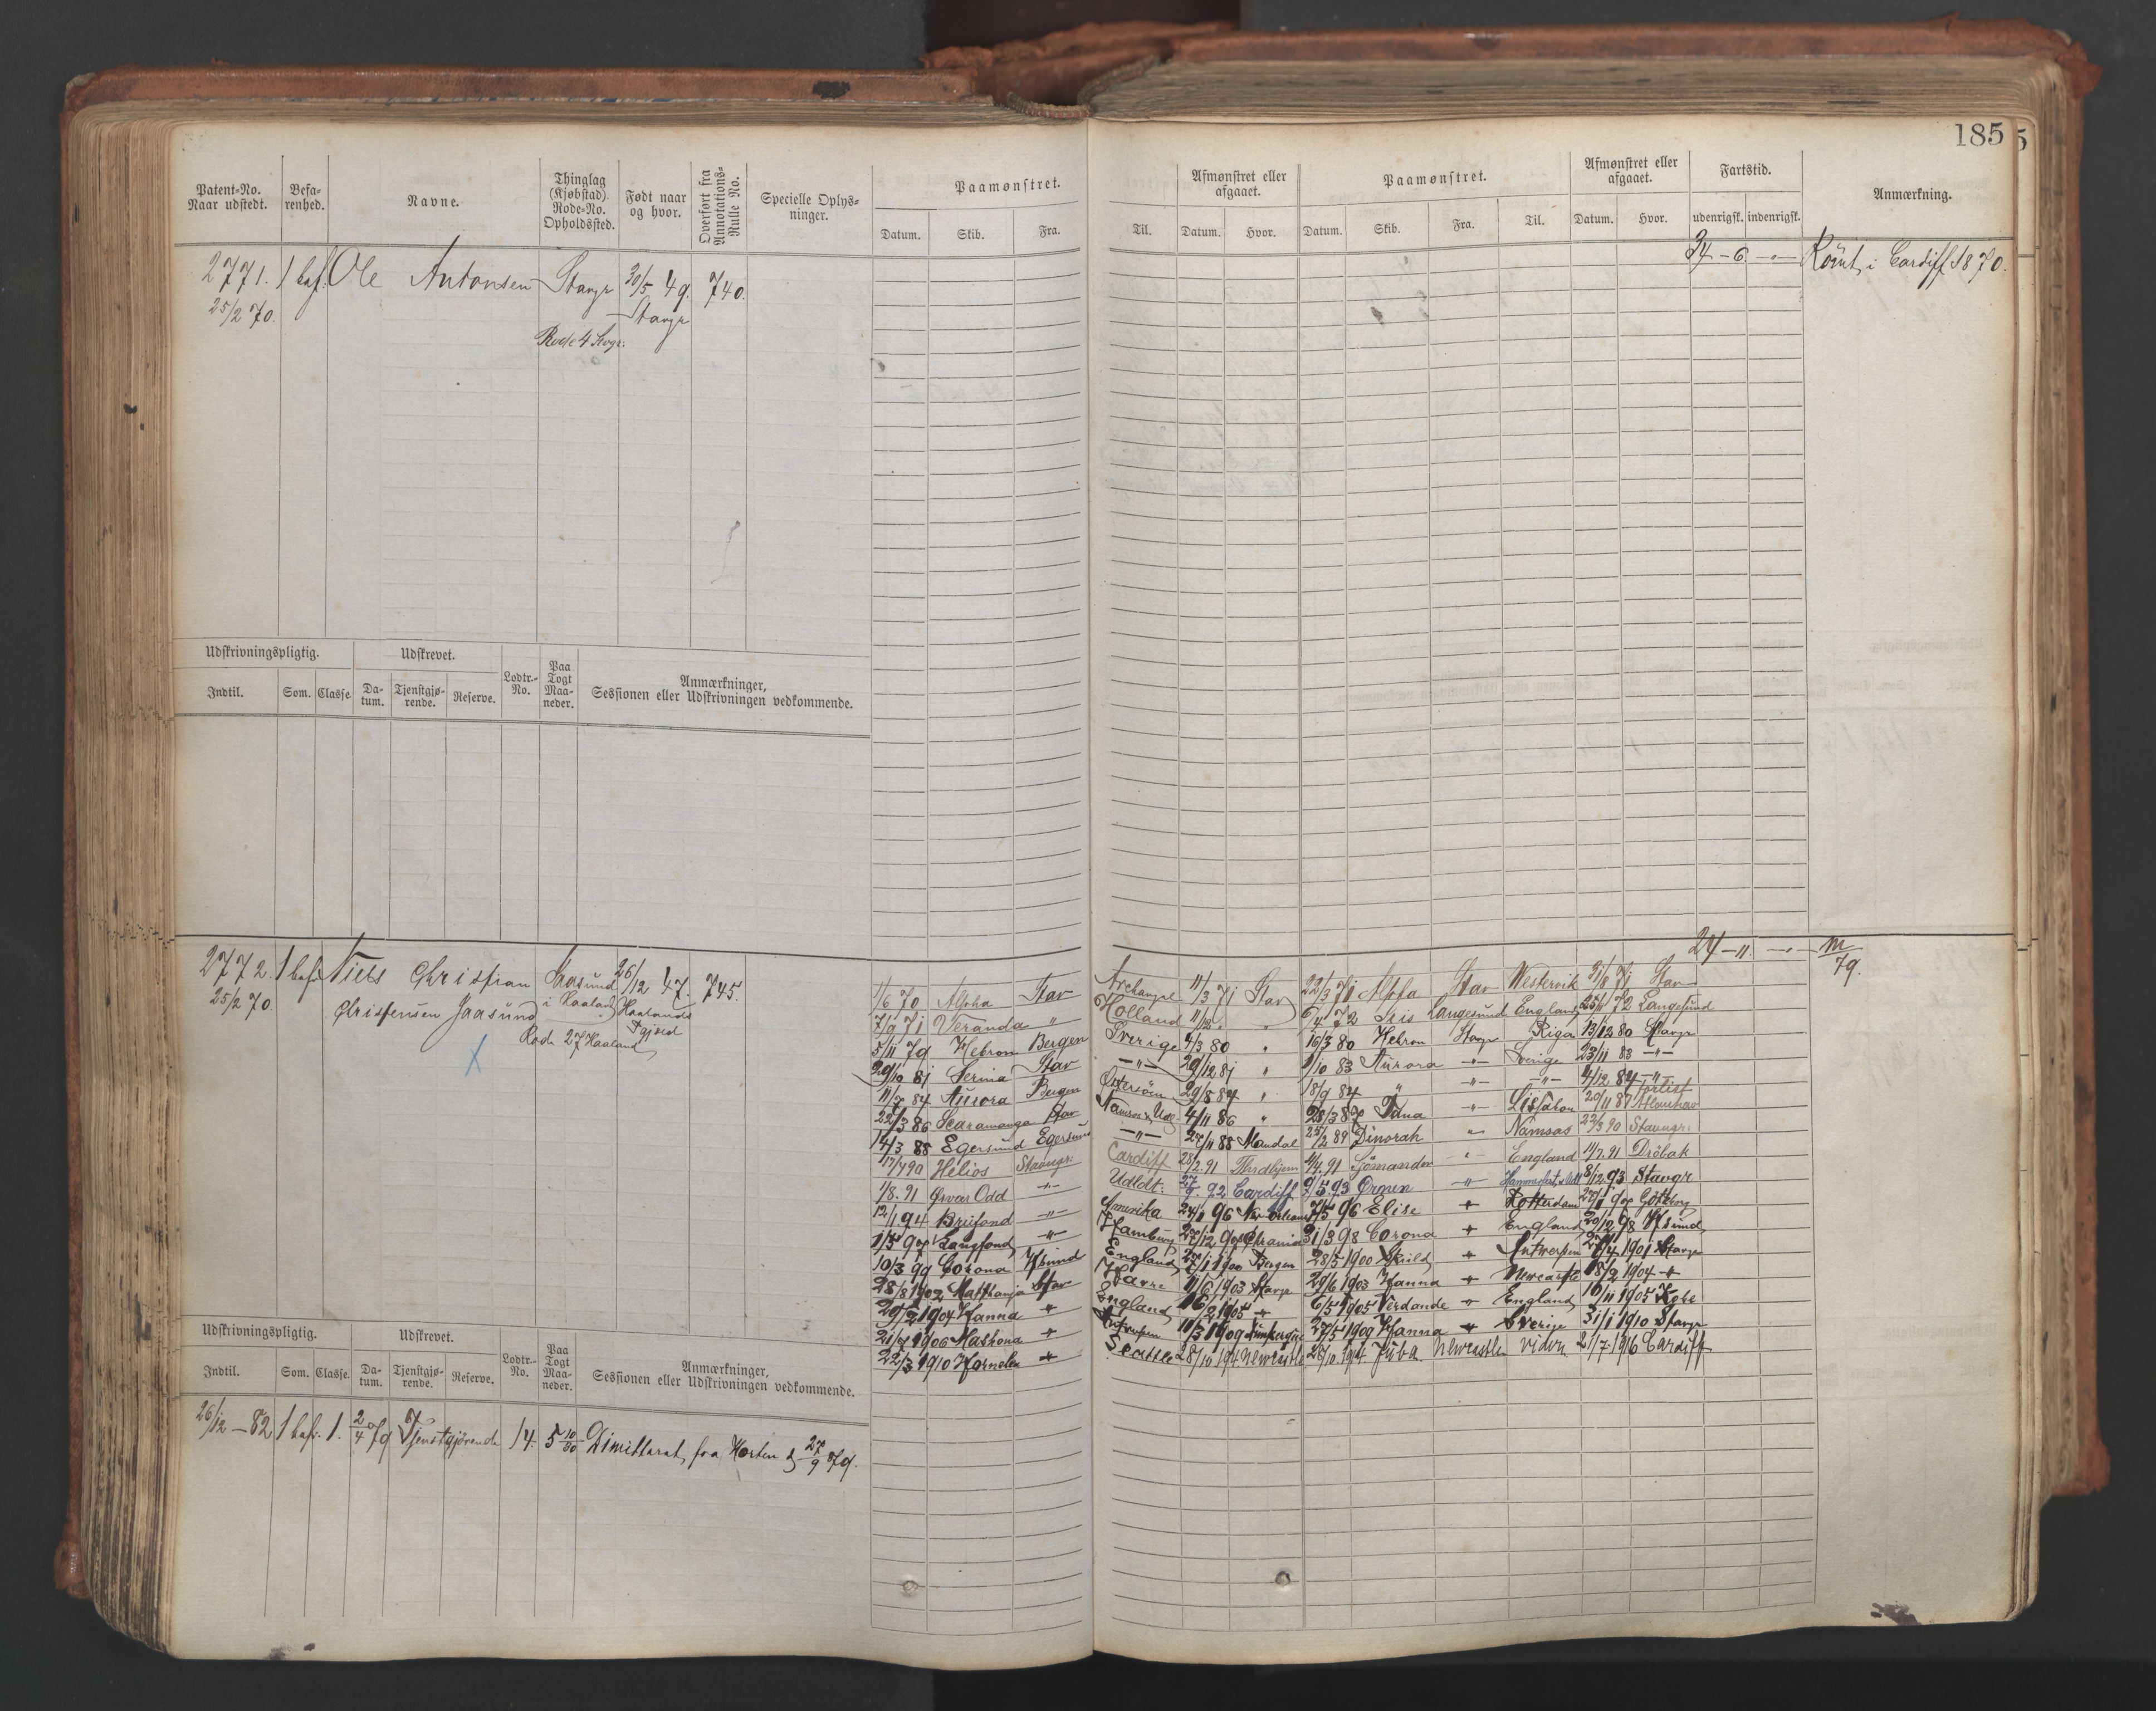 185
Patent-No. Naar udstedt. Befarenhed. Navne. Thinglag (Kjøbstad). Rode-No. Opholdssted. Født naar og hvor. Overført fra Annotations-Rulle No. Specielle Oplysninger. Paamønstret. Afmønstret eller afgaaet. Paamønstret. Afmønstret eller afgaaet. Fartstid. Anmærkning.
Datum. Skib. Fra. Til. Datum. Hvor. Datum. Skib. Fra. Til. Datum. Hvor. udenrigsk. indenrigsk.
2771. 1 bef. Ole Antonsen Stavgr 30/5 49. 740. 34 - 6 - " - Römt i Cardiff 1870.
25/2 70. Stavgr
Rode 4 Stvgr.
Udskrivningspligtig. Udskrevet. Lodtr.-No. Paa Togt Maaneder. Anmærkninger, Sessionen eller Udskrivningen vedkommende.
Indtil. Som. Classe. Datum. Tjenstgjørende. Reserve.
2772. 1 bef. Niels Christian Jaasund 26/12 47. 745. 24 - " - " - m/79.
25/2 70. Christensen Jaasund i Haaland Haalands Pgjæld
Rode 27 Haaland
1/6 70 Alpha Stav Archangel 11/3 71 Stav 22/3 71 Alpha Stav Westervik 31/8 71 Stav
7/9 71 Veranda " Holland 11/12 " " 6/4 72 Iris Langesund England 25/11 72 Langesund
5/11 79 Hebron Bergen Sverige 4/3 80 " 16/3 80 Hebron Stavgr Riga 13/12 80 Stavgr
20/10 81 Serina Stav - " - 29/12 81 " 1/10 83 Aurora - " - Sverige 23/11 83 - " -
11/7 84 Aurora Bergen Östersöen 29/8 84 " 18/9 84 " - " - - " - 4/12 84 - " -
22/3 86 Scaramanga Stav 4/11 86 " 28/3 87 Tana - " - Lissabon 20/11 87
14/3 88 Egersund Egersund - " - 27/11 88 Mandal 25/2 89 Dinorah " Namsos 22/3 90 Stavngr.
17/7 90 Helios Stavngr. Cardiff 28/2. 91 Thrdhjem 4/4. 91 Sjömanden - " - England 11/7. 91 Dröbak
1/8. 91 Ørvar Odd - " - Udldt. 27/9. 92 Cardiff 9/5 93 Ørnen - " - 8/12 93 Stavgr
12/1 94 Breifond - " - Amerika 24/1 96 New Orleans 7/5 96 Elise + Rotterdam Götborg
1/5 97 Langfond - " - Hamburg 27/12 97 Chrania 31/3 98 Corona + England 20/12 98
10/3 99 Corona England 27/1 1900 Bergen 28/5 1900 Skuld + Antwerpen 27/4 1901 Stavgr
28/8 1902 Stav Havre 11/6 1903 Stavgr 29/6 1903 Hanna + Newcastle 18/2 1904 +
29/2 1904 Hanna + England 16/2 1905 + 6/5 1905 Verdande + England 10/11 1905 Kobe
21/7 1906 Mashona + Antwerpen 11/3 1909 Dunkerque 27/5 1909 Hanna + Sverige 31/1 1910 Stavgr
22/3 1910 Hornelen + Seattle 28/10 1914 Newcastle 28/10. 1914. Juba Newcastle vidre 21/7 1916 Cardiff
Udskrivningspligtig. Udskrevet. Lodtr.-No. Paa Togt Maaneder. Anmærkninger, Sessionen eller Udskrivningen vedkommende.
Indtil. Som. Classe. Datum. Tjenstgjørende. Reserve.
26/12 - 82 1 bef. 1. 2/4 79 Tjenstgjörende 14. 5 10/30 Dimitteret fra Horten d 27/9 79.